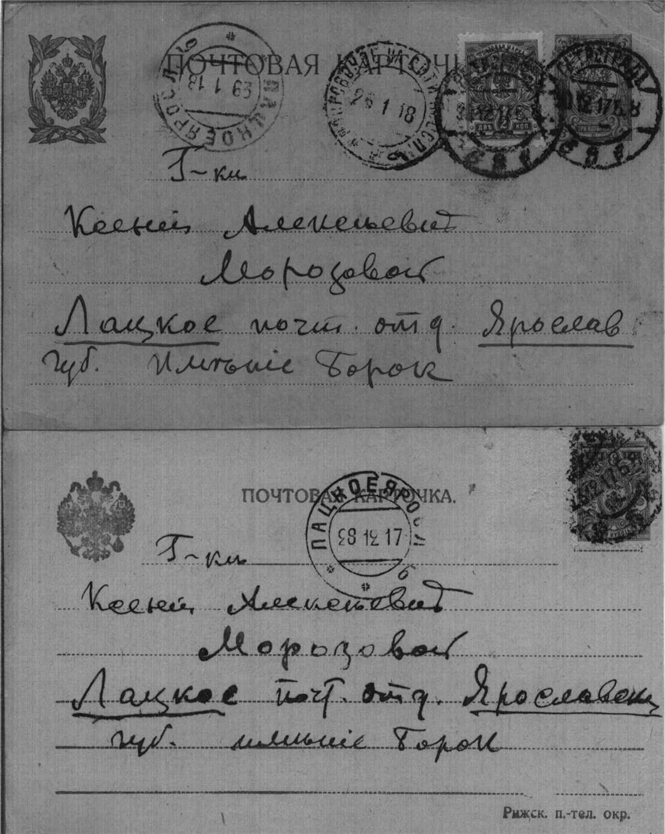 ПОЧТОВАЯ КАРТОЧКА
26 1 18
ПЕТРОГРАДЪ
Г-жѣ
Ксеніи Алексѣевнѣ
Морозовой
Лацкое почт. отд. Ярослав
губ. Имѣніе Борок
ПОЧТОВАЯ КАРТОЧКА.
ЛАЦКОЕ ЯРОСЛ
28 12 17
Г-жѣ
Ксеніи Алексѣевнѣ
Морозовой
Лацкое почт. отд. Ярославск
губ. имѣніе Борок
Рижск. п.-тел. окр.